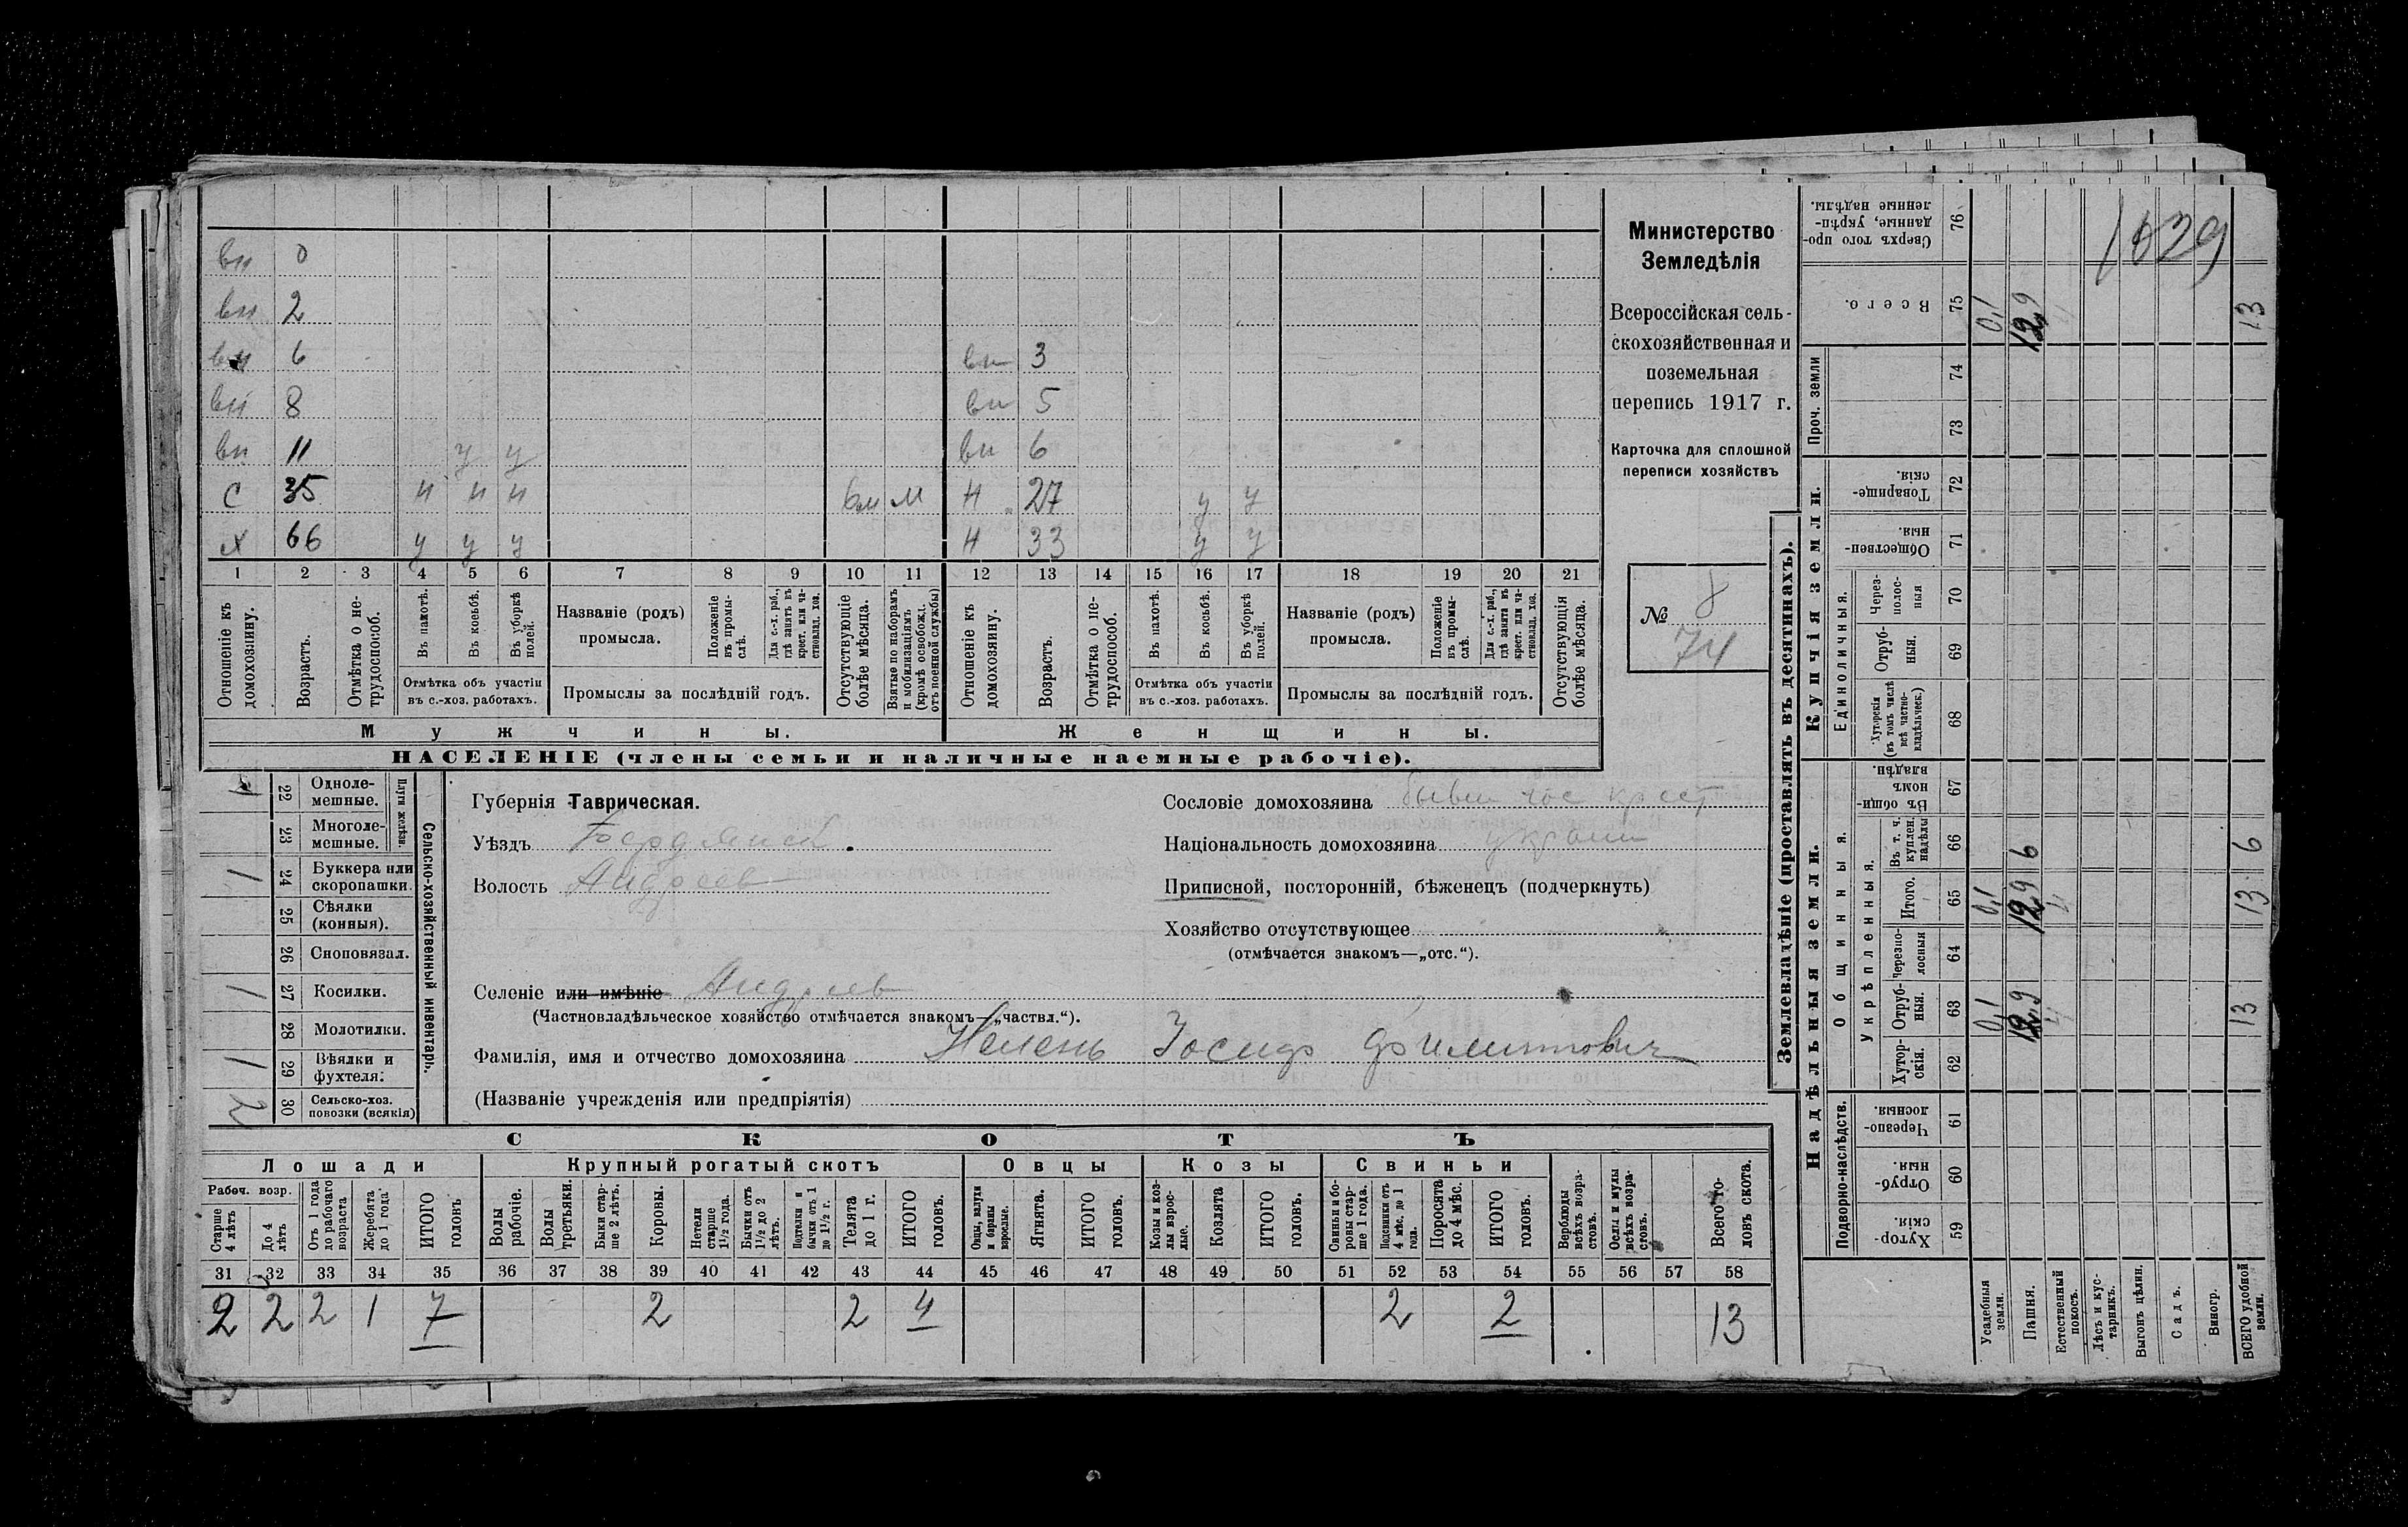 вн 0
вн 2
вн 6 вн 3
вн 8 вн 5
вн 11 у у вн 6
С 35 н н н вм м Н 27 у у
Х 66 у у у Н 33 у у
1 2 3 4 5 6 7 8 9 10 11 12 13 14 15 16 17 18 19 20 21
Отношеніе къ домохозяину.
Возрастъ.
Отмѣтка о не-трудоспособ.
Въ пахотѣ.
Въ косьбѣ.
Въ уборкѣ полей.
Отмѣтка объ участіи
въ с.-хоз. работахъ.
Названіе (родъ)
промысла.
Положеніе въ промы-слѣ.
Для с.-х. раб., гдѣ занятъ въ крест. или ча-стновлад. хоз.
Промыслы за послѣдній годъ.
Отсутствующіе болѣе мѣсяца.
Взятые по наборамъ и мобилизаціямъ (кромѣ освобожд. отъ военной службы)
Отношеніе къ домохозяину.
Возрастъ.
Отмѣтка о не-трудоспособ.
Въ пахотѣ.
Въ косьбѣ.
Въ уборкѣ полей.
Отмѣтка объ участіи
въ с.-хоз. работахъ.
Названіе (родъ)
промысла.
Положеніе въ промы-слѣ.
Для с.-х. раб., гдѣ занятъ въ крест. или ча-стновлад. хоз.
Промыслы за послѣдній годъ.
Отсутствующія болѣе мѣсяца.
Мужчины. Женщины.
НАСЕЛЕНІЕ (члены семьи и наличные наемные рабочіе).
Министерство
Земледѣлія
Всероссійская сель-
скохозяйственная и
поземельная
перепись 1917 г.
Карточка для сплошной
переписи хозяйствъ
№ 8
74
Сельско-хозяйственный инвентарь.
Плуги желѣзн.
22 Одноле-мешные.
23 Многоле-мешные.
1 24 Буккера или скоропашки.
25 Сѣялки (конныя).
26 Сноповязал.
1 27 Косилки.
28 Молотилки.
1 29 Вѣялки и фухтеля:
2 30 Сельско-хоз. повозки (всякія)
Губернія Таврическая.
Уѣздъ Бердянск
Волость Андреев
Селеніе или имѣніе Андреев
(Частновладѣльческое хозяйство отмѣчается знакомъ—„частвл.“).
Фамилія, имя и отчество домохозяина Иосиф Филиппович
(Названіе учрежденія или предпріятія)
Сословіе домохозяина бывш гос крест
Національность домохозяина украин
Приписной, посторонній, бѣженецъ (подчеркнуть)
Хозяйство отсутствующее
(отмѣчается знакомъ—„отс.“).
СКОТЪ
Лошади Крупный рогатый скотъ Овцы Козы Свиньи
Рабоч. возр.
Старше 4 лѣтъ
До 4 лѣтъ
Отъ 1 года до рабочаго возраста
Жеребята до 1 года
ИТОГО головъ
Волы рабочіе.
Волы третьяки.
Быки стар-ше 2 лѣтъ.
Коровы.
Нетели старше 1½ года.
Бычки отъ 1½ до 2 лѣтъ.
Подтелки и бычки отъ 1 до 1½ г.
Телята до 1 г.
ИТОГО головъ.
Овцы, валухи и бараны взрослые.
Ягнята.
ИТОГО головъ.
Козы и коз-лы взрос-лые.
Козлята
ИТОГО головъ.
Свиньи и бо-ровы стар-ше 1 года.
Подсвинки отъ 4 мѣс. до 1 года.
Поросята до 4 мѣс.
ИТОГО головъ.
Верблюды всѣхъ возра-стовъ.
Ослы и мулы всѣхъ возра-стовъ.
Всего го-ловъ скота.
31 32 33 34 35 36 37 38 39 40 41 42 43 44 45 46 47 48 49 50 51 52 53 54 55 56 57 58
2 2 2 1 7 2 2 4 2 2 13
Землевладѣніе (проставлять въ десятинахъ).
Надѣльныя земли. Купчія земли. Проч. земли
Подворно-наслѣдств.
Общинныя.
Укрѣпленныя.
Единоличныя.
Сверхъ того про-данные, укрѣп-ленные надѣлы. 76
Всего. 75 0,1 12,9 13
74
73
Товарище-скія. 72
Обществен-ныя. 71
Через-полос-ныя 70
Отруб-ныя. 69
Хуторскія (въ томъ числѣ всѣ частно-владѣльческ.) 68
Въ общи-номъ владѣн. 67
Въ т. ч. куплен. надѣлы 66 6 6
Итого. 65 0,1 12,9 13
Черезпо-лосныя 64
Отруб-ныя. 63 0,1 12,9 13
Хутор-скія. 62
Черезпо-лосныя. 61
Отруб-ныя. 60
Хутор-скія. 59
Усадебныя земли.
Пашня.
Естественный покосъ.
Лѣсъ и кус-тарникъ.
Выгонъ цѣлин.
Садъ.
Виногр.
ВСЕГО удобной земли.